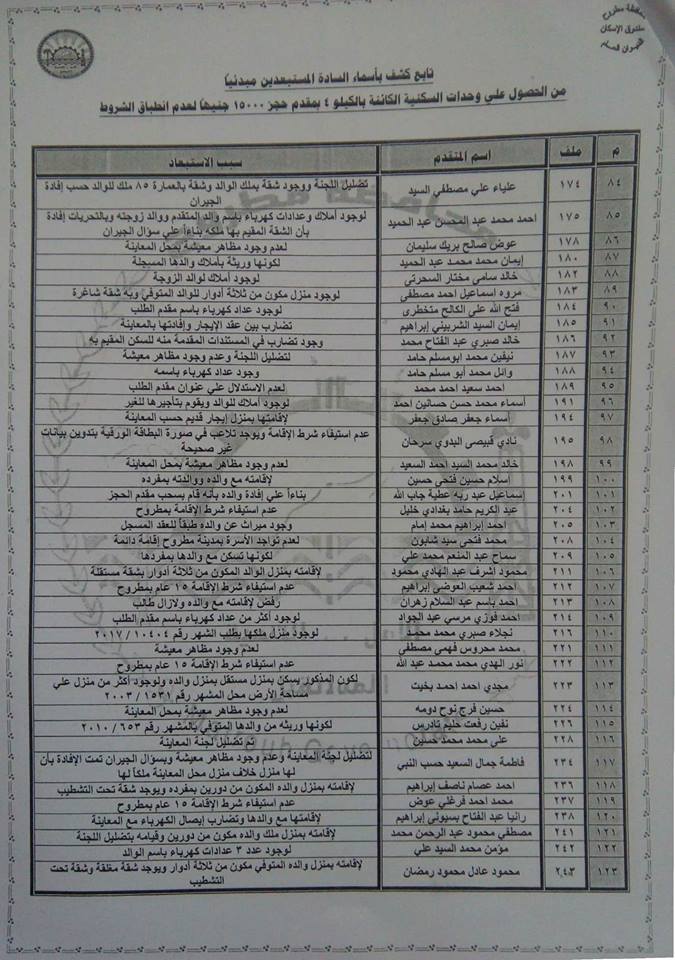 محافظة مطروح
صندوق الإسكان
تابع كشف بأسماء السادة المستبعدين مبدئياً
من الحصول علي وحدات السكنية الكائنة بالكيلو ٤ بمقدم حجز ١٥٠٠٠ جنيهاً لعدم انطباق الشروط
م ملف اسم المتقدم سبب الاستبعاد
٨٤ ١٧٤ علياء علي مصطفي السيد تضليل اللجنة ووجود شقة بملك الوالد وشقة بالعمارة ٨٥ ملك للوالد حسب إفادة
الجيران
٨٥ ١٧٥ احمد محمد عبد المحسن عبد الحميد لوجود أملاك وعدادات كهرباء باسم والد المتقدم ووالد زوجته وبالتحريات إفادة
بأن الشقة المقيم بها ملكه بناءاً علي سؤال الجيران
٨٦ ١٧٨ عوض صالح بريك سليمان لعدم وجود مظاهر معيشة بمحل المعاينة
٨٧ ١٨٠ إيمان محمد محمد عبد الحميد لكونها وريثة بأملاك والدها المسجلة
٨٨ ١٨٢ خالد سامي مختار السحرتي لوجود أملاك لوالد الزوجة
٨٩ ١٨٣ مروه اسماعيل احمد مصطفي لوجود منزل مكون من ثلاثة أدوار للوالد المتوفي وبه شقة شاغرة
٩٠ ١٨٤ فتح الله علي الكالح متخطري لوجود عداد كهرباء باسم مقدم الطلب
٩١ ١٨٥ إيمان السيد الشربيني إبراهيم تضارب بين عقد الإيجار وإفادتها بالمعاينة
٩٢ ١٨٦ خالد صبري عبد الفتاح محمد وجود تضارب في المستندات المقدمة منه للسكن المقيم به
٩٣ ١٨٧ نيفين محمد ابومسلم حامد لتضليل اللجنة وعدم وجود مظاهر معيشة
٩٤ ١٨٨ وائل محمد أبو مسلم حامد وجود عداد كهرباء باسمه
٩٥ ١٨٩ احمد سعيد احمد محمد لعدم الاستدلال علي عنوان مقدم الطلب
٩٦ ١٩١ أسماء محمد حسن حسانين احمد لوجود أملاك للوالد ويقوم بتأجيرها للغير
٩٧ ١٩٤ أسماء جعفر صادق جعفر لإقامتها بمنزل إيجار قديم حسب المعاينة
٩٨ ١٩٥ نادي قبيصي البدوي سرحان عدم استيفاء شرط الإقامة ويوجد تلاعب في صورة البطاقة الورقية بتدوين بيانات
غير صحيحة
٩٩ ١٩٨ خالد محمد السيد احمد السعيد لعدم وجود مظاهر معيشة بمحل المعاينة
١٠٠ ١٩٩ إسلام حسين فتحي حسين لإقامته مع والده ووالدته بمفرده
١٠١ ٢٠١ إسماعيل عبد ربه عطية جاب الله بناءاً علي إفادة والده بأنه قام بسحب مقدم الحجز
١٠٢ ٢٠٤ عبد الكريم حامد بغدادي خليل عدم استيفاء شرط الإقامة بمطروح
١٠٣ ٢٠٥ احمد إبراهيم محمد إمام وجود ميراث عن والده طبقاً للعقد المسجل
١٠٤ ٢٠٨ محمد فتحي سيد شابون لعدم تواجد الأسرة بمدينة مطروح إقامة دائمة
١٠٥ ٢٠٩ سماح عبد المنعم محمد علي لكونها تسكن مع والدها بمفردها
١٠٦ ٢١١ محمود أشرف عبد الهادي محمود لإقامته بمنزل الوالد المكون من ثلاثة أدوار بشقة مستقلة
١٠٧ ٢١٢ احمد شعيب العوضي إبراهيم عدم استيفاء شرط الإقامة ١٥ عام بمطروح
١٠٨ ٢١٣ احمد باسم عبد السلام زهران رفض لإقامته مع والده ولازال طالب
١٠٩ ٢١٤ احمد فوزي مرسي عبد الجواد لوجود أكثر من عداد كهرباء باسم مقدم الطلب
١١٠ ٢١٦ نجلاء صبري محمد محمد لوجود منزل ملكها بطلب الشهر رقم ١٠٤٠٤ / ٢٠١٧
١١١ ٢٢١ محمد محروس فهمي مصطفي لعدم وجود مظاهر معيشة
١١٢ ٢٢٢ نور الهدي محمد محمد عبد الله عدم استيفاء شرط الإقامة ١٥ عام بمطروح
١١٣ ٢٢٣ مجدي احمد احمد بخيت لكون المذكور يسكن بمنزل مستقل بمنزل والده ولوجود أكثر من منزل علي
مساحة الأرض محل المشهر رقم ١٥٣١ / ٢٠٠٣
١١٤ ٢٢٤ حسين فرج نوح دومه لعدم وجود مظاهر معيشة بمحل المعاينة
١١٥ ٢٢٦ نفين رفعت حليم تادرس لكونها وريثه من والدها المتوفي بالمشهر رقم ٦٥٣ / ٢٠١٠
١١٦ ٢٢٨ علي محمد محمد حسين تم تضليل لجنة المعاينة
١١٧ ٢٣٤ فاطمة جمال السعيد حسب النبي لتضليل لجنة المعاينة وعدم وجود مظاهر معيشة وبسؤال الجيران تمت الإفادة بأن
لها منزل خلاف منزل محل المعاينة ملكاً لها
١١٨ ٢٣٦ احمد عصام ناصف إبراهيم لإقامته بمنزل والده المكون من دورين بمفرده ويوجد شقة تحت التشطيب
١١٩ ٢٣٧ محمد احمد فرغلي عوض عدم استيفاء شرط الإقامة ١٥ عام بمطروح
١٢٠ ٢٣٨ رانيا عبد الفتاح بسيوني إبراهيم لإقامتها مع والدها وتضارب إيصال الكهرباء مع المعاينة
١٢١ ٢٤١ مصطفي محمود عبد الرحمن محمد لإقامته بمنزل ملك والده مكون من دورين وقيامه بتضليل اللجنة
١٢٢ ٢٤٢ مؤمن محمد السيد علي لوجود عدد ٣ عدادات كهرباء باسم الوالد
١٢٣ ٢٤٣ محمود عادل محمود رمضان لإقامته بمنزل والده المتوفي مكون من ثلاثة أدوار ويوجد شقة مغلقة وشقة تحت
التشطيب